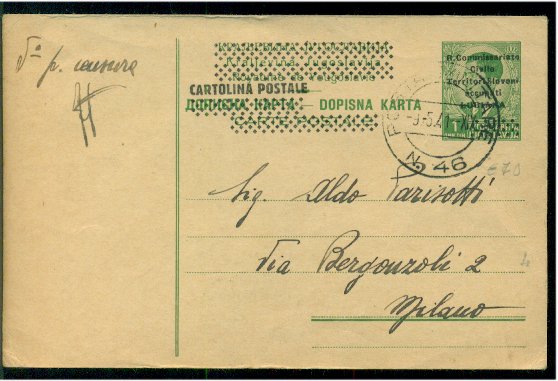 Vº p. censura
CARTOLINA POSTALE
ДОПИСНА КАРТА — DOPISNA KARTA
CARTE POSTALE
R. Commissariato
Civile
Territori Sloveni
occupati
LUBIANA
POSTA
-9.5.41.XIX
N. 46
Sig. Aldo Parisotti
Via Bergonzoli 2
Milano